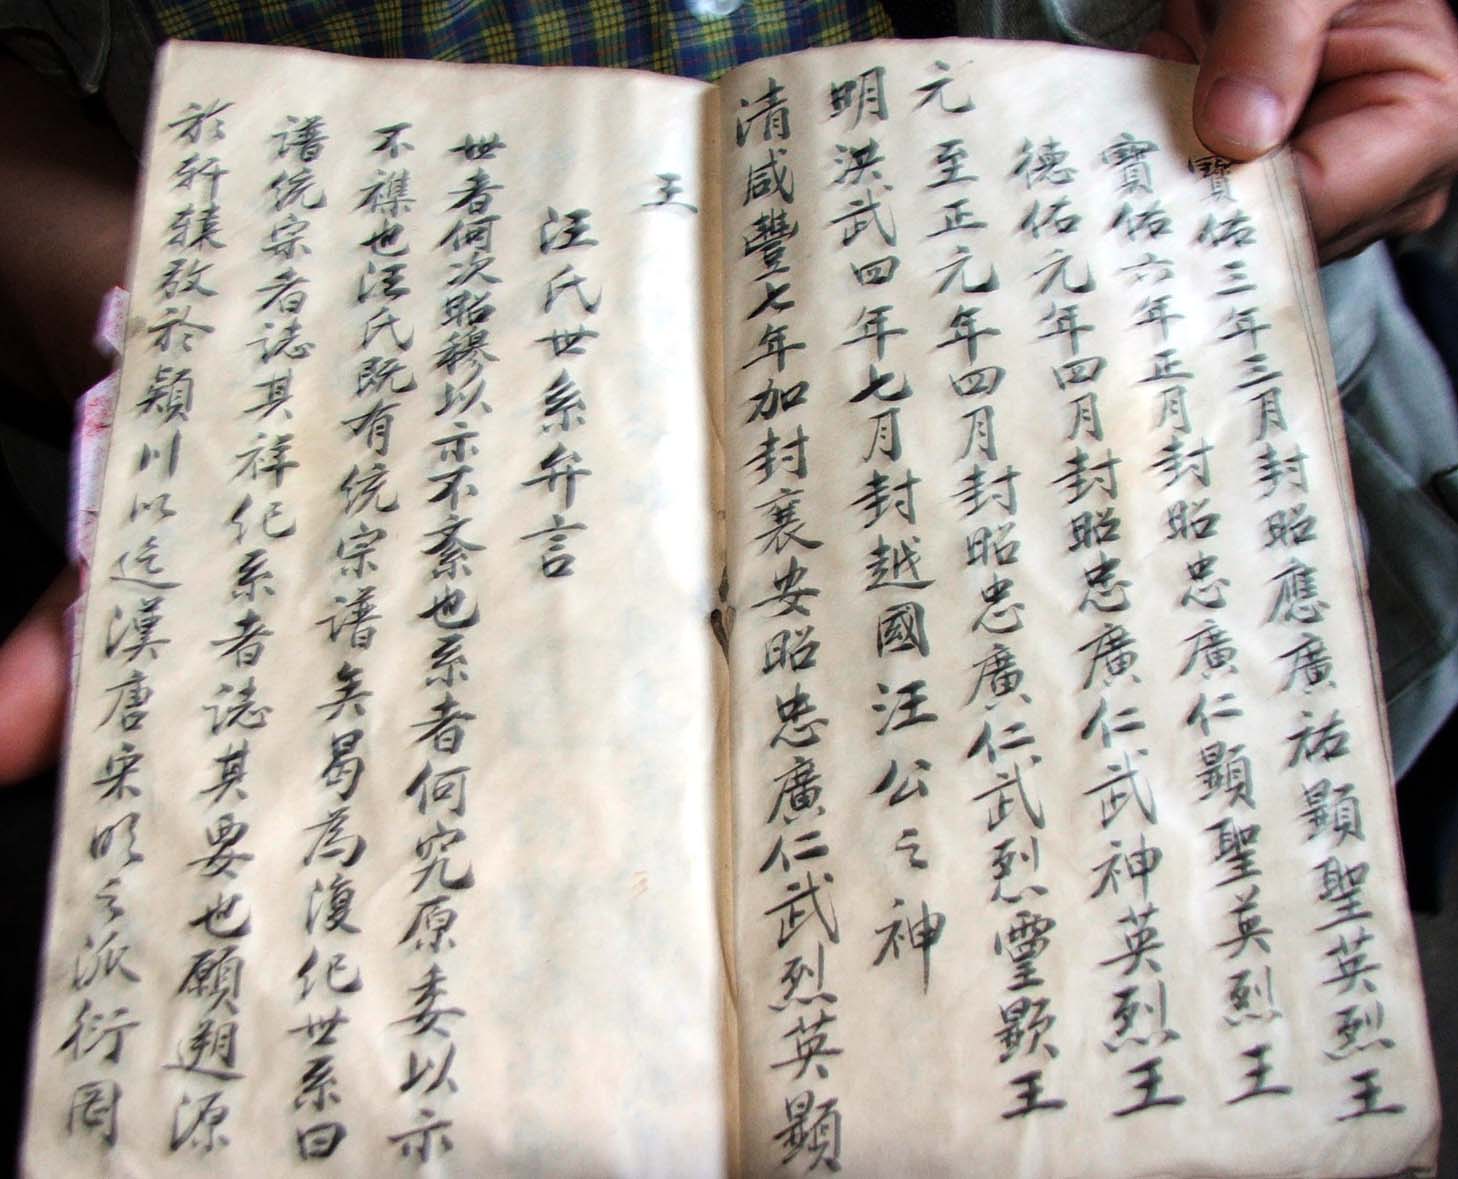 寶佑三年三月封昭應廣祐顯聖英烈王
寶佑六年正月封昭忠廣仁顯聖英烈王
德佑元年四月封昭忠廣仁武神英烈王
元至正元年四月封昭忠廣仁武烈靈顯王
明洪武四年七月封越國汪公之神
清咸豐七年加封襄安昭忠廣仁武烈英顯
王
汪氏世系弁言
世者何次昭穆以示不紊也系者何究原委以示
不襍也汪氏既有統宗譜矣曷為復紀世系曰
譜統宗者誌其祥紀系者誌其要也願遡源
於軒轅敎於潁川以迄漢唐宋明之派衍罔